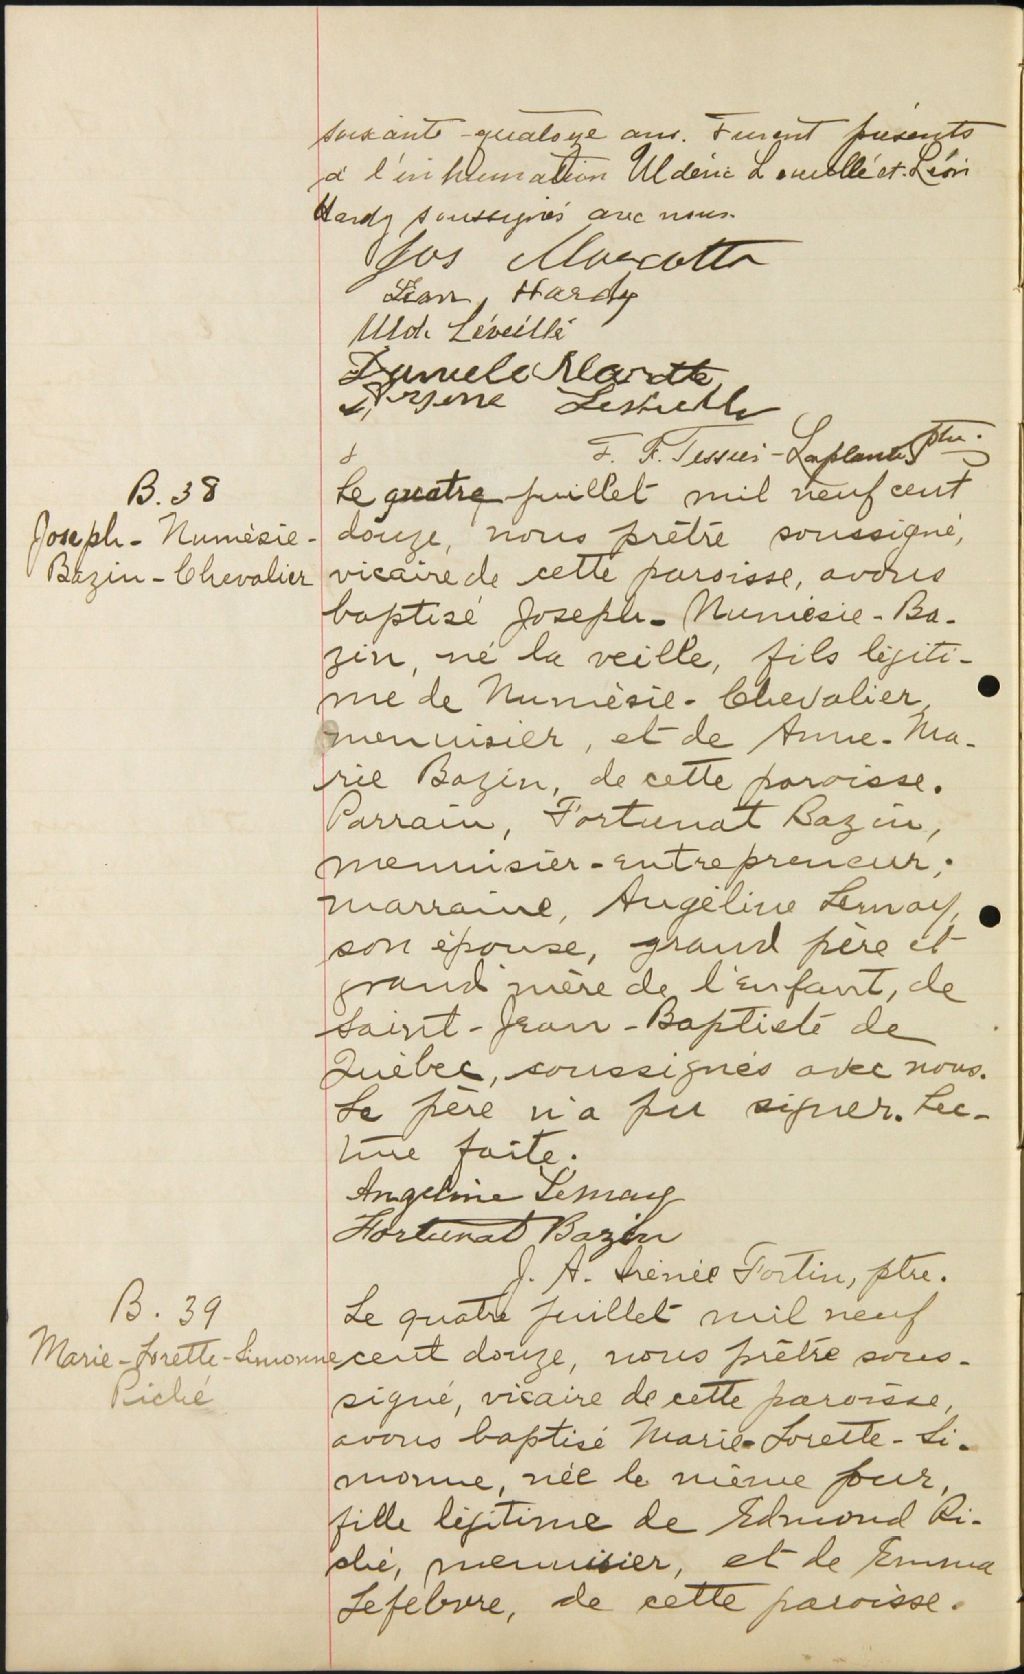 soixante-quatorze ans. Furent présents
à l'inhumation Uldéric Léveillé et Léon
Hardy soussignés avec nous.
Jos Marcotte
Léon Hardy
Uld. Léveillé
Marcotte
F. F. Tessier-Laplante, ptre.
B. 38
Joseph-Numésie-
Bazin-Chevalier
Le quatre juillet mil neuf cent
douze, nous prêtre soussigné,
vicaire de cette paroisse, avons
baptisé Joseph-Numésie-Ba-
zin, né la veille, fils légiti-
me de Numésie-Chevalier,
menuisier, et de Anne-Ma-
rie Bazin, de cette paroisse.
Parrain, Fortunat Bazin,
menuisier-entrepreneur;
marraine, Angéline Lemay,
son épouse, grand père et
grand'mère de l'enfant, de
Saint-Jean-Baptiste de
Québec, soussignés avec nous.
Le père n'a pu signer. Lec-
ture faite.
Angeline Lemay
Fortunat Bazin
J. A. Irénée Fortin, ptre.
B. 39
Marie-Lorette-Simonne
Piché
Le quatre juillet mil neuf
cent douze, nous prêtre sous-
signé, vicaire de cette paroisse,
avons baptisé Marie-Lorette-Si-
monne, née le même jour,
fille légitime de Edmond Pi-
ché, menuisier, et de Emma
Lefebvre, de cette paroisse.